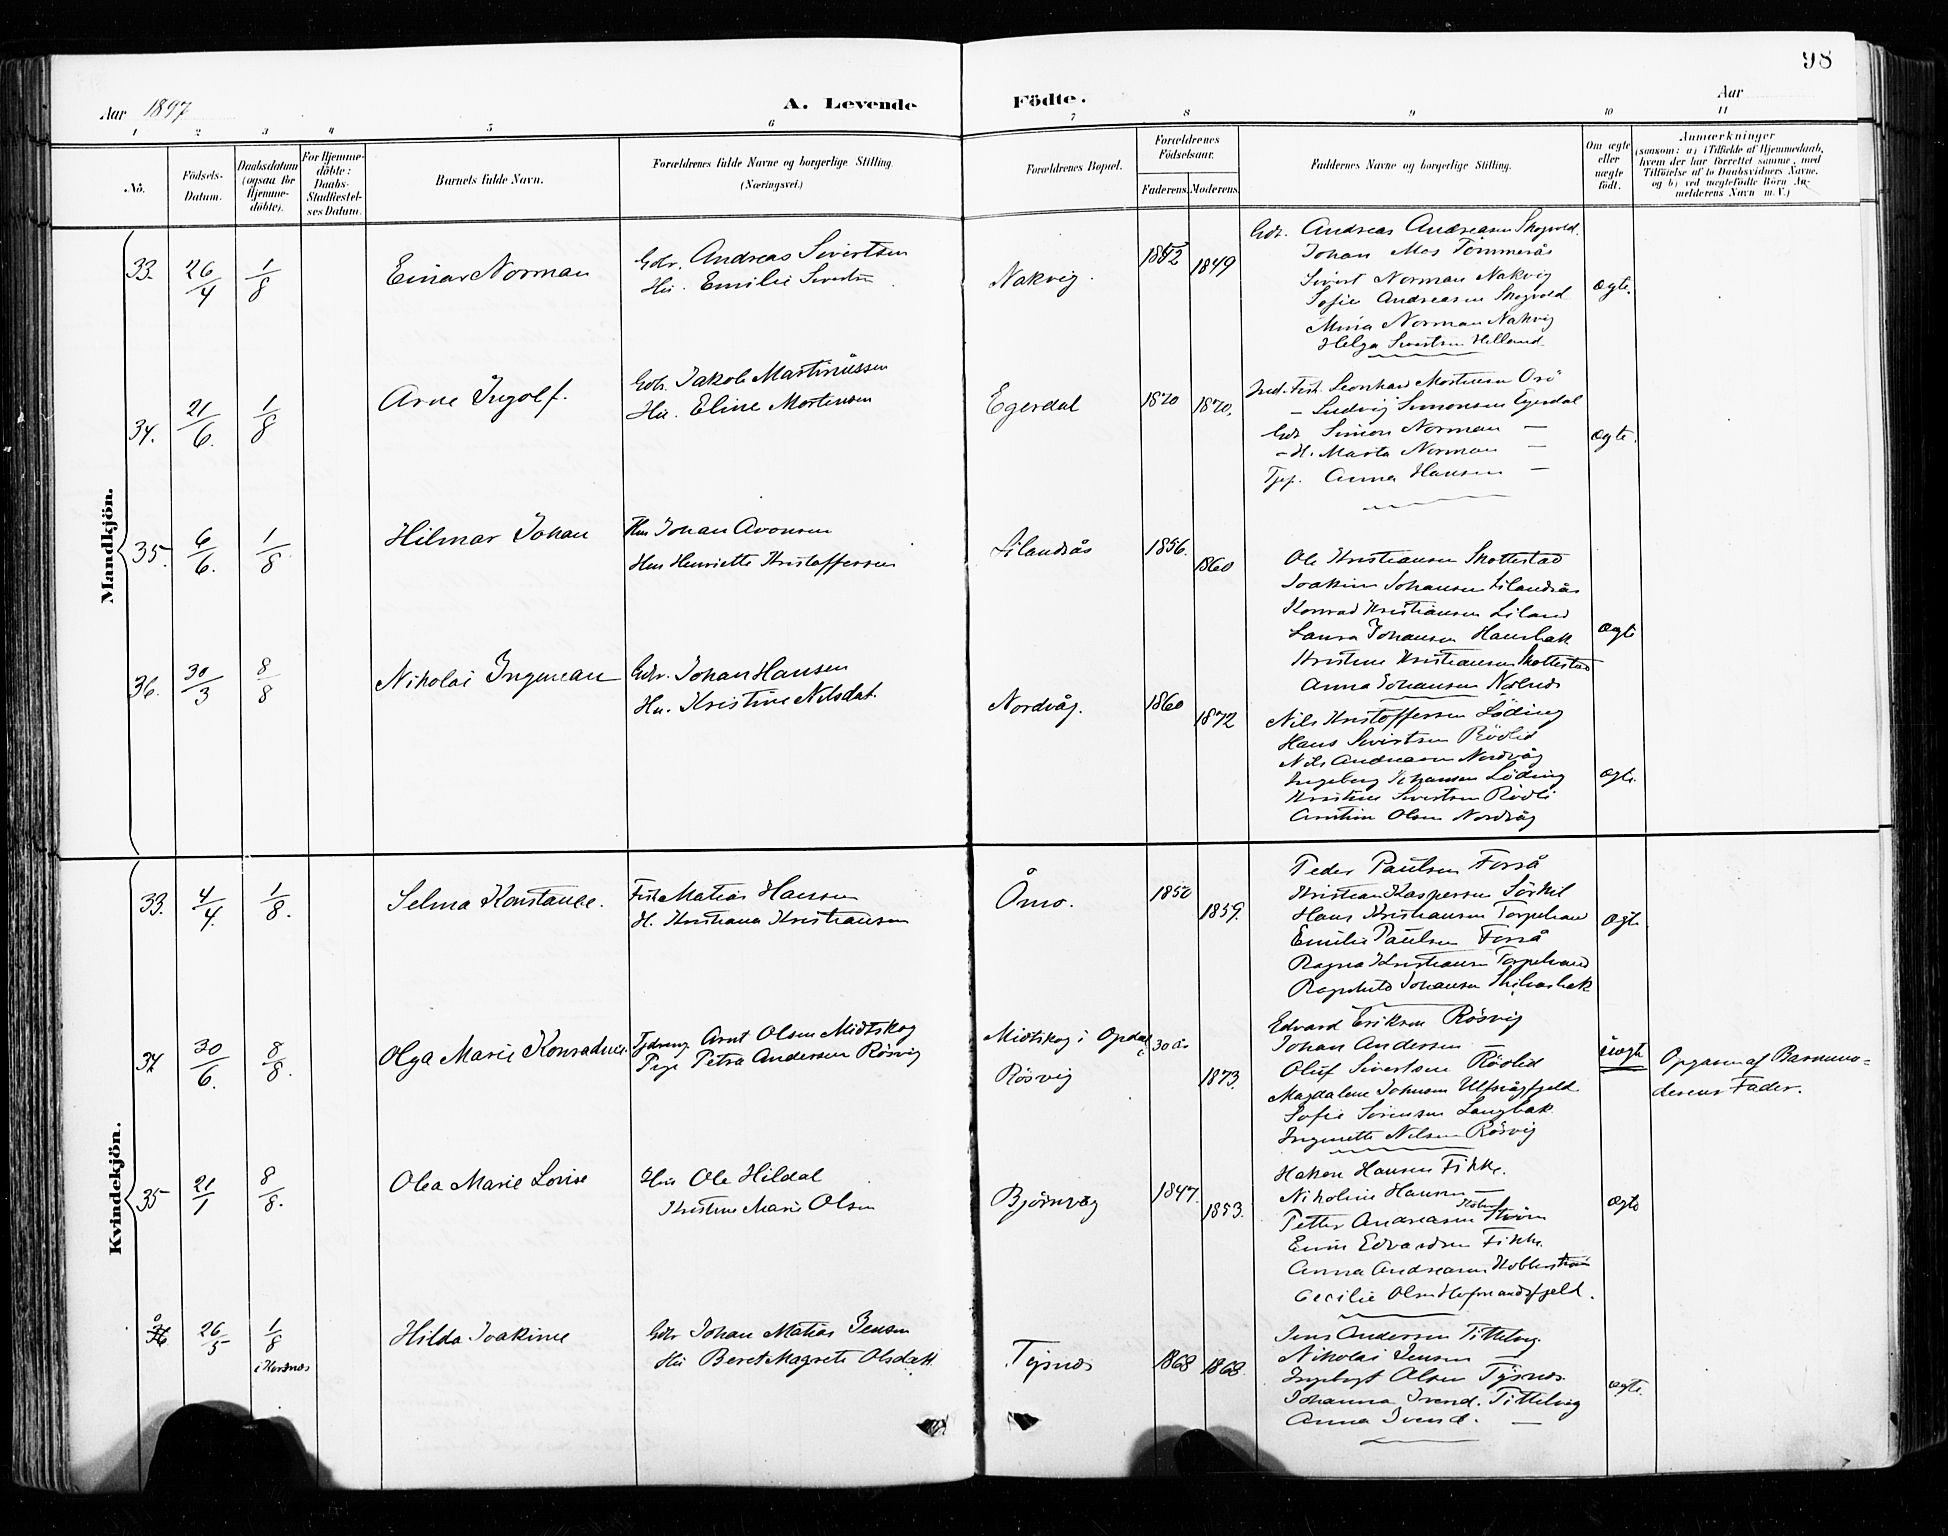 98
Aar 1897 A. Levende Födte. Aar
1 2 3 4 5 6 7 8 9 10 11
No. Födsels-Datum. Daabsdatum (ogsaa for Hjemme-döbte). For Hjemme-döbte: Daabs-Stadfæstel-ses Datum. Barnets fulde Navn. Forældrenes fulde Navne og borgerlige Stilling. (Næringsvei.) Forældrenes Bopæl. Forældrenes Fødselsaar. Faderens. Moderens. Faddernes Navne og borgerlige Stilling. Om ægte eller uægte födt. Anmærkninger (saasom: a) i Tilfælde af Hjemmedaab, hvem der har forrettet samme, med Tilföielse af to Daabsvidners Navne, og b) ved uægtefödte Börn An-melderens Navn m. V.)
Mandkjön.
33. 26/4 1/8 Einar Norman
Gdr. Andreas Sivertsen
Hu. Emilie Sivertsn
Nakvig. 1849
Gdr. Andreas Andreasen Skogvold.
Johan Mos Tömmerås
Sivert Norman Nakvig
Sofie Andreasen Skogvold
Mina Norman Nakvig
Helga Sivertsen Helland
ægte.
34. 21/6. 1/8 Arne Ingolf.
Gdr. Jakob Martinussen
Hu. Eline Mortensen
Egerdal 1870 1870.
Ind. Fisk. Leonhard Mortensen Orö
— Ludvig Simonsen Egerdal
Gdr Simon Norman —
- H. Marta Norman —
Tjp. Anna Hansen —
ægte.
35. 6/6. 1/8 Hilmar Johan
Hm Johan Aronsen
Hus Henriette Kristoffersen
Lilandsås 1856. 1860
Ole Kristiansen Skottestad
Joakim Johansen Lilandsås
Konrad Kristiansen Liland
Laura Johansen Haugbak
Kristine Kristiansen Skottestad
Anna Johansen
ægte
36. 30/3 8/8 Nikolai Ingeman
Gdr. Johan Hansen
Hu. Kristine Nilsdat.
Nordvåg. 1860 1872
Nils Kristoffersen Löding
Hans Sivertsen Rödlid
Nils Andreasen Nordvåg
Ingeborg Johansen Löding
Kristine Sivertsen Rödli
Olsen Nordvåg
ægte.
Kvindekjön.
33. 4/4. 1/8. Selma Konstance.
Fisk Matias Hansen
H. Kristiana Kristiansen
Ömo. 1850 1859.
Peder Paulsen Forså
Kristian Kaspersen Sörkil
Hans Kristiansen Torpeham
Emilie Paulsen Forså
Ragna Kristiansen
Ragnhild Johansen
ægte
34 30/6. 8/8. Olga Marie Konradine.
Tjdreng Arnt Olsen Midtskog
Pige Petra Andersen Rösvig
Midtskog i Opdal 30 år
Rösvig 1873.
Edvard Eriksen Rösvig
Johan Andersen —
Oluf Sivertsen Rödlid
Magdalene Johnsen Ulfsvågfjeld
Sofie Sörensen Langbak
Ingenette Nilsen Rösvig
uægte
Opgave af Barnemo-
derens Fader.
35 21/1 8/8. Olea Marie Lovise
Hus Ole Hildal
Kristine Marie Olsen
Björnvåg 1847. 1853.
Hakon Hansen Fikke.
Nikoline Hansen —
Petter Andreasen Kobberström
Enin Edvardsen Fikke.
Anna Andreasen Kobberström
Cecilie Olsen
ægte
36 26/5 1/8 i Hordnæs Hilda Joakime
Gdr Johan Matias Jensen
Hu Beret Magrete Olsdatt.
Tysnæs 1868 1868.
Jens Andersen Tittelvig
Nikolai Jensen —
Ingebrgt Olsen Tysnæs
Johanna Svend. Tittelvig
Anna Svend. —
ægte.